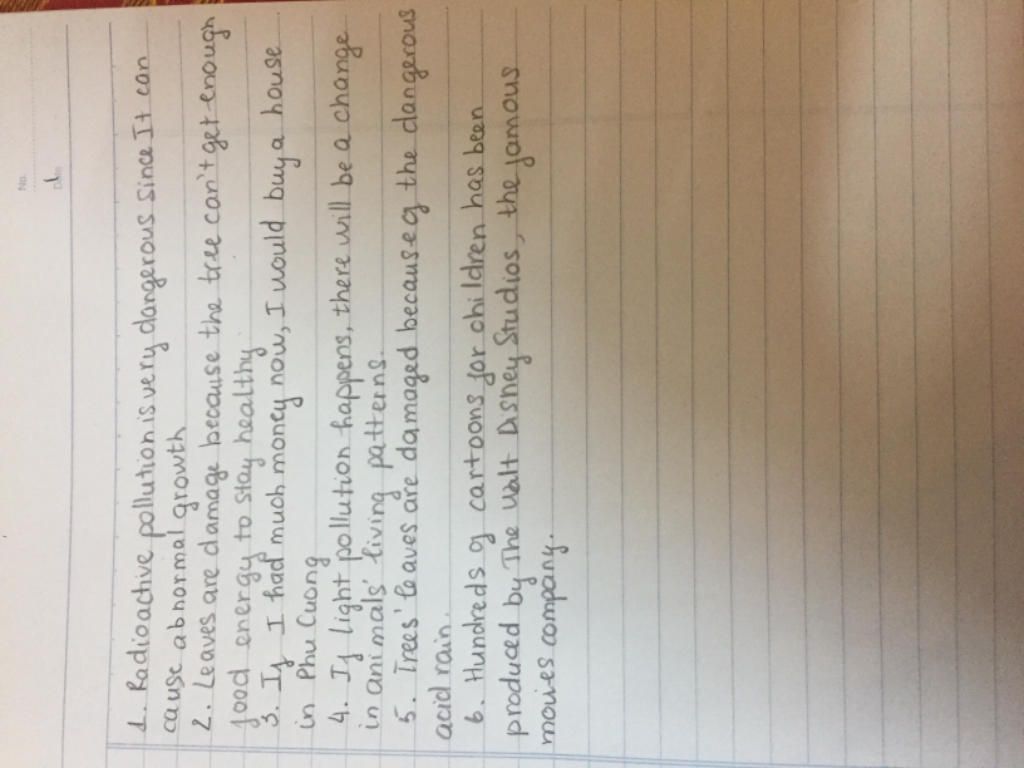 No.
Date
1. Radioactive pollution is very dangerous since It can
cause abnormal growth
2. Leaves are damage because the tree can't get enough
food energy to stay healthy
3. If I had much money now, I would buy a house
in Phu Cuong
4. If light pollution happens, there will be a change
in animals' living patterns.
5. Trees' leaves are damaged because of the dangerous
acid rain.
6. Hundreds of cartoons for children has been
produced by The Walt Disney Studios, the famous
movies company.